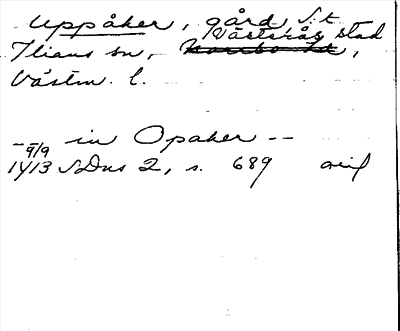 Uppåker, gård, S:t
Västerås stad
Ilians sn,
Västm. l.
-- in Opaker --
9/9
1413 SDns 2, s. 689 orig